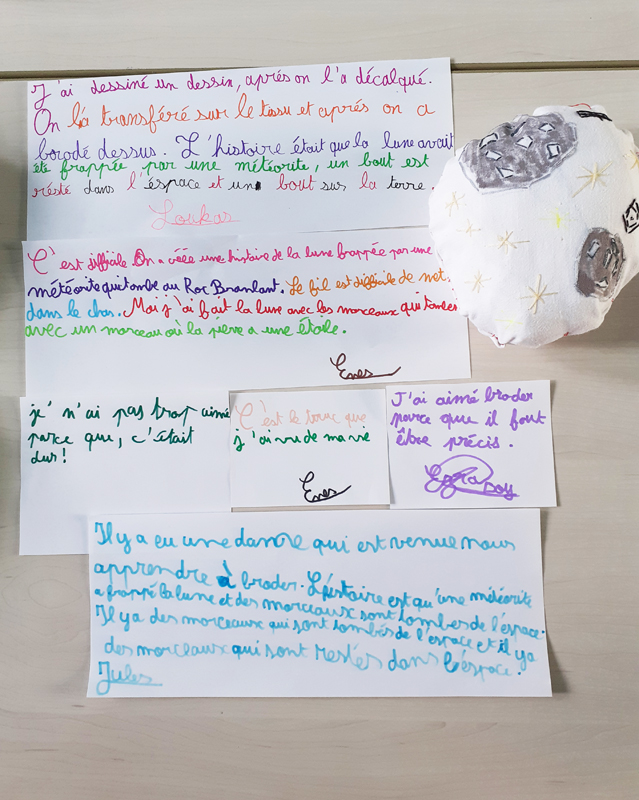 J'ai dessiné un dessin, aprés on l'a décalqué.
On l'á transféré sur le tissu et aprés on a
borodé dessus. L'histoire était que la lune avait
été frappée par une météorite, un bout est
résté dans l'éspace et un bout sur la terre.
Loukas
C'est difficile On a créée une histoire de la lune frappée par une
météorite qui tombe au Roc Branlant. Le fil est difficile de met
dans le chas. Moi j'ai fait la lune avec les morceaux qui tombent
avec un morceau où la pierre a une étoile.
Enes
je' n'ai pas trop aimé
parce que, c'était
dur!
C'est le truc que
j'ai vu de ma vie
Enes
J'ai aimé broder
parce que il faut
être précis.
Il y a eu une dame qui est venue nous
apprendre à broder. L'histoire est qu'une météorite
a frappé la lune et des morceaux sont tombés de l'espace.
Il y a des morceaux qui sont tombés de l'espace et il y a
des morceaux qui sont restés dans l'espace.
Jules